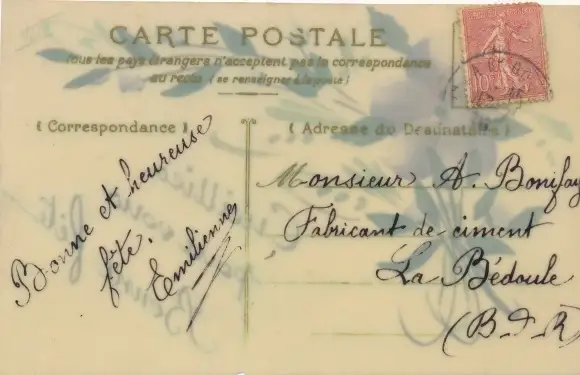 CARTE POSTALE
Tous les pays étrangers n'acceptent pas la correspondance
au recto (se renseigner à la poste)
(Correspondance)
(Adresse du Destinataire)
Bonne et heureuse
fête.
Emilienne
Monsieur A. Bonifay
Fabricant de ciment
La Bédoule
(B-d-R)